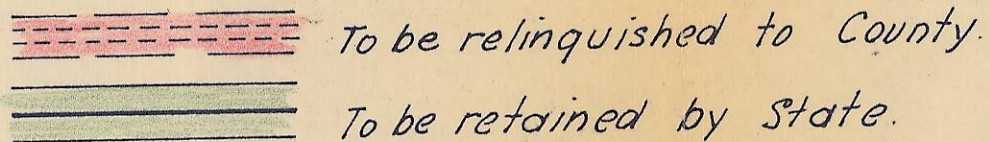 To be relinquished to County.
To be retained by State.